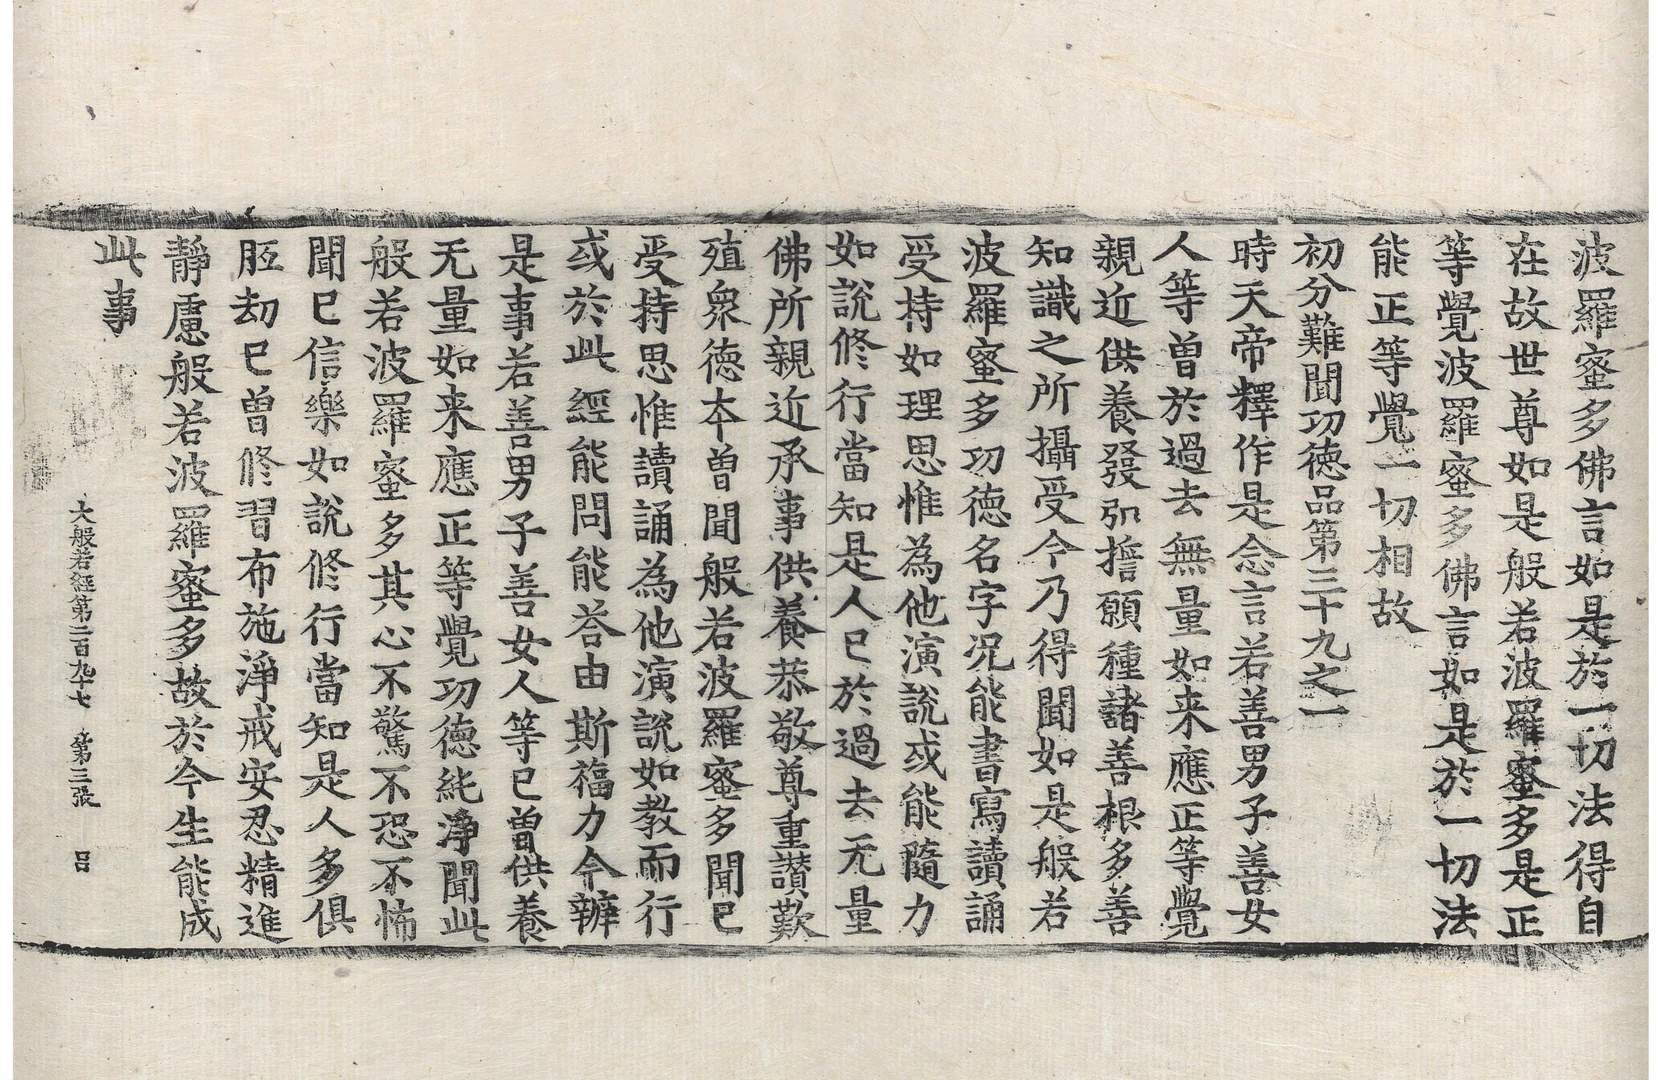 波羅蜜多佛言如是於一切法得自
在故世尊如是般若波羅蜜多是正
等覺波羅蜜多佛言如是於一切法
能正等覺一切相故
初分難聞功德品第三十九之一
時天帝釋作是念言若善男子善女
人等曽於過去無量如来應正等覺
親近供養發弘擔願種諸善根多善
知識之所攝受今乃得聞如是般若
波羅蜜多功徳名字况能書寫讀誦
受持如理思惟為他演說或能隨力
如說修行當知是人已於過去无量
佛所親近承事供養恭敬尊重讃歎
殖衆徳夲曽聞般若波羅蜜多聞已
受持思惟讀誦為他演說如教而行
或於此經能問能荅由斯福力今辦
是事若善男子善女人等已曽供養
无量如来應正等覺功徳純淨聞此
般若波羅蜜多其心不驚不恐不怖
聞已信樂如說修行當知是人多俱
胝劫已曽修習布施淨戒安忍精進
靜慮般若波羅蜜多故於今生能成
此事
大般若經第二百九十七 第三張 吕